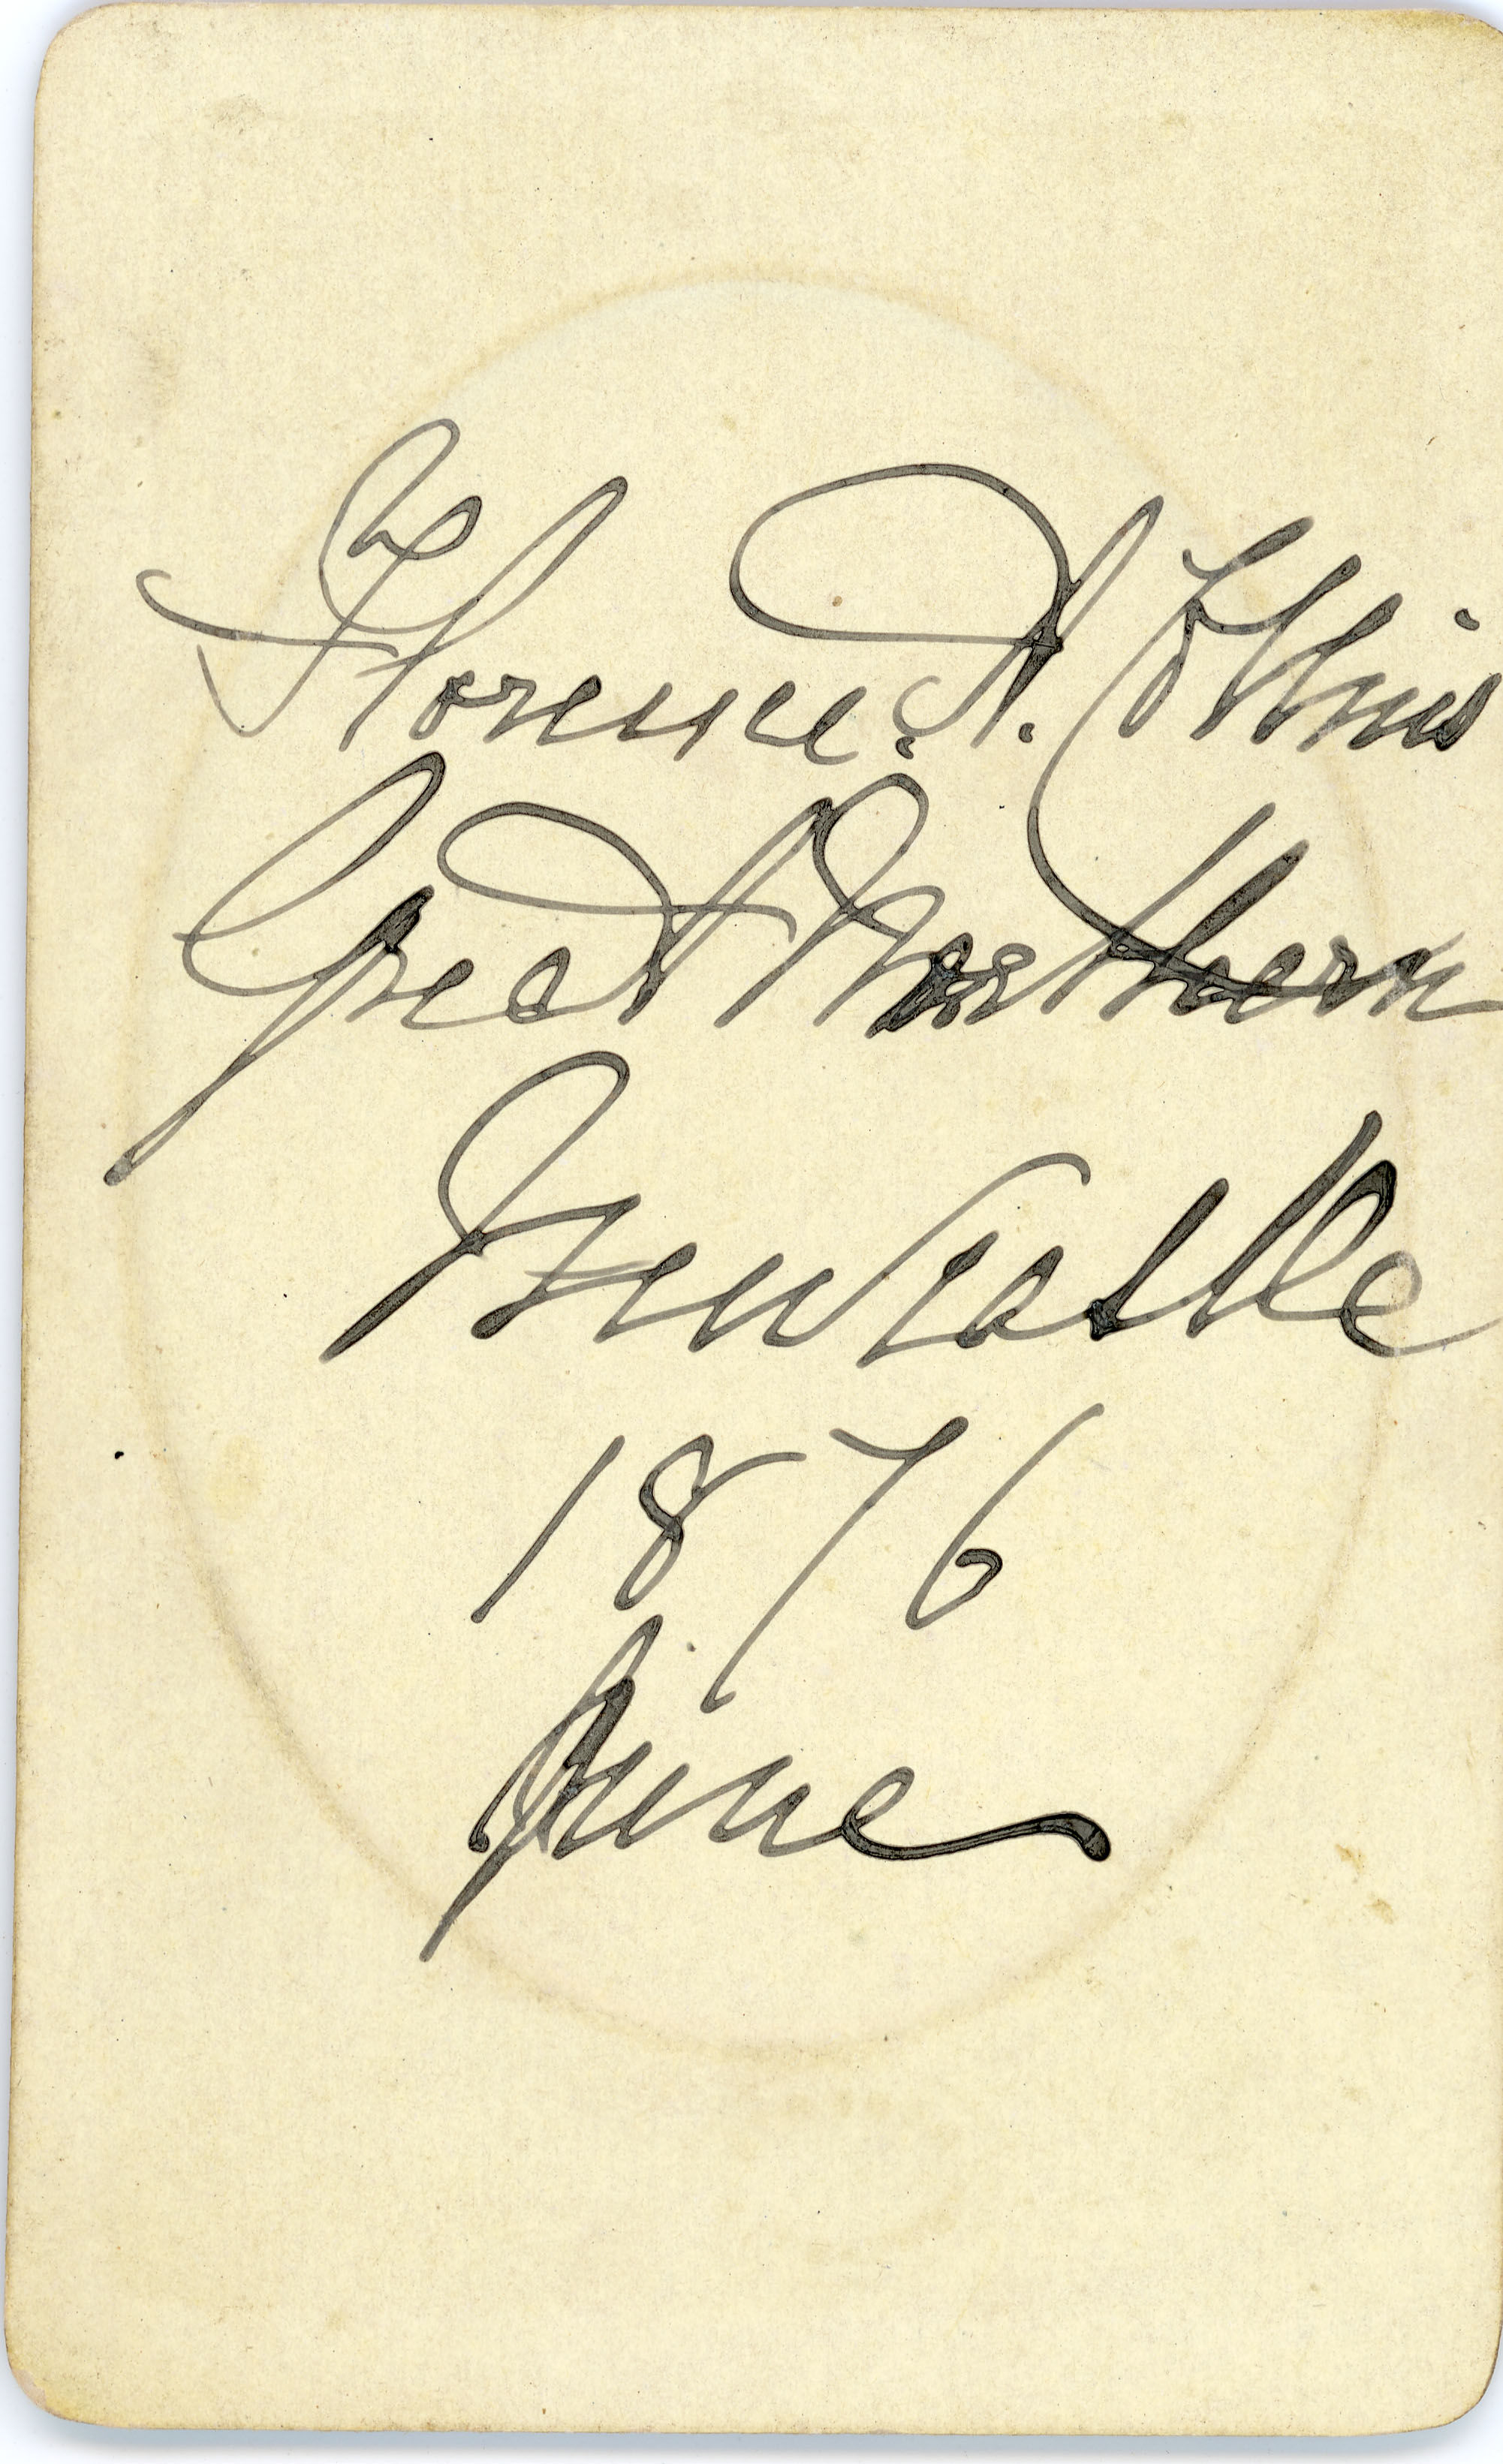 Florence. A. Collins
Great Northern
New Castle
1876
June